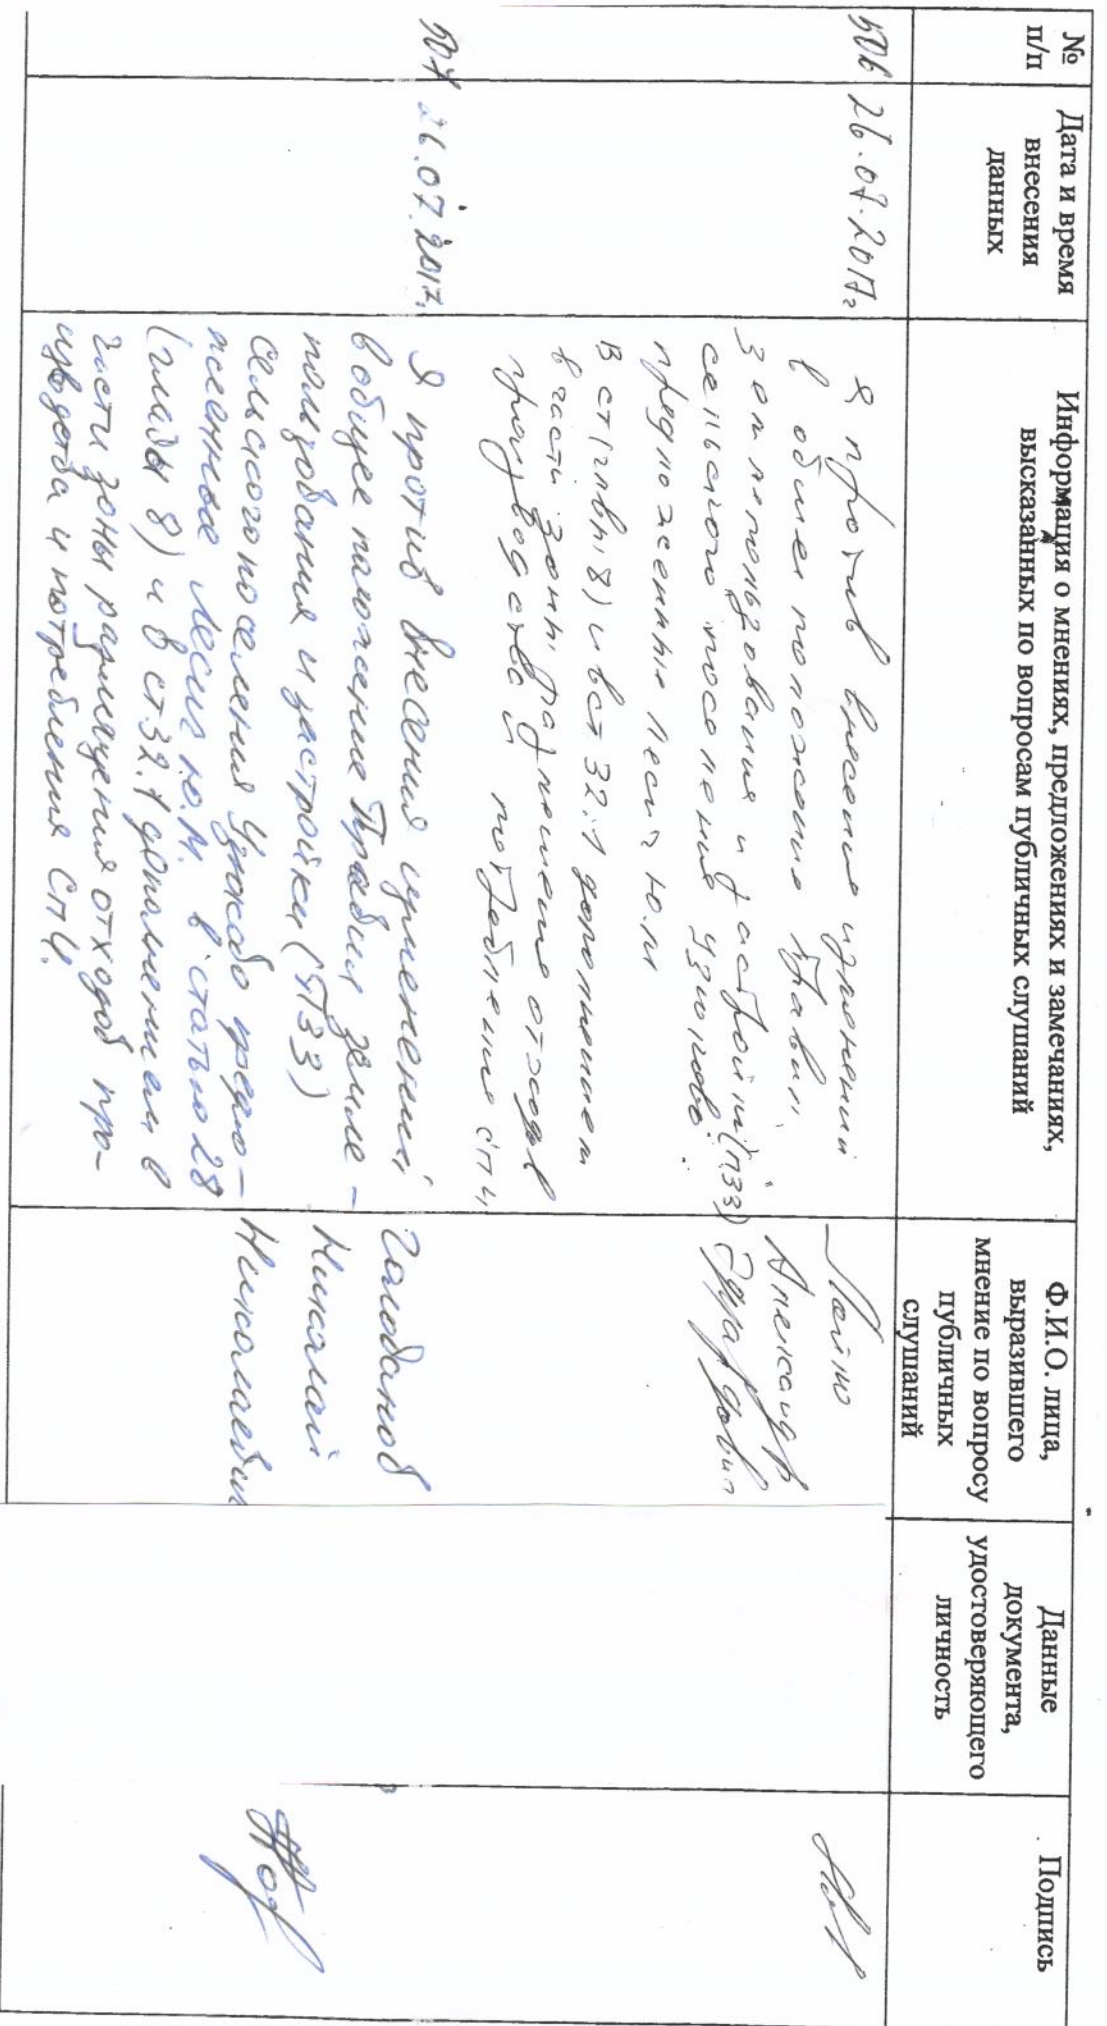 №
п/п
Дата и время
внесения
данных
Информация о мнениях, предложениях и замечаниях,
высказанных по вопросам публичных слушаний
Ф.И.О. лица,
выразившего
мнение по вопросу
публичных
слушаний
Данные
документа,
удостоверяющего
личность
Подпись
506
26.07.2017г
Я против внесения изменений
в общее положение Правил
землепользования и застройки (ПЗЗ)
сельского поселения Узюково.
предложенные Лесиг Ю.М
в ст (главы 8) и в ст 32.1 дополнением
в части зоны размещение отходов
производства и потребление СП4,
Александр
Эдуардович
507
26.07.2017г.
Я против внесения изменений
в общее положение Правил земле-
пользования и застройки (ПЗЗ)
сельского поселения Узюково предло-
женное Лесиг Ю.М. в статью 28
(главы 8) и в ст.32.1 дополнением в
части зоны размещения отходов про-
изводства и потребления СП4.
Голованов
Николай
Николаевич